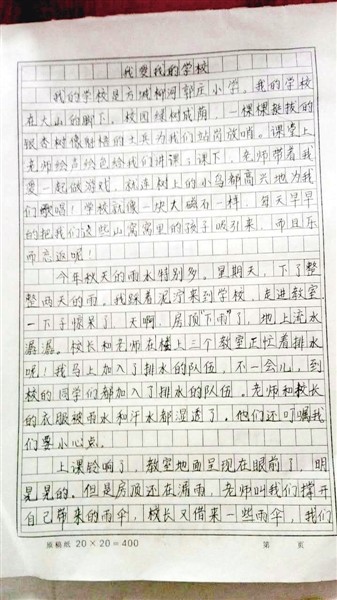 我爱我的学校
我的学校是方城柳河郭庄小学。我的学校
在大山的脚下，校园绿树成荫，一棵棵挺拔的
银杏树像威武的士兵为我们站岗放哨。课堂上
老师绘声绘色给我们讲课；课下，老师带着我
爱一起做游戏，就连树上的小鸟都高兴地为我
们歌唱！学校就像一块大磁石一样，每天早早
的把我们这些山窝窝里的孩子吸引来，而且乐
而忘返呢！
今年秋天的雨水特别多。星期天，下了整
整两天的雨。我踩着泥泞来到学校，走进教室
一下子惊呆了，天啊，房顶"下雨"了，地上流水
潺潺。校长和老师在楼上三个教室正忙着排水
呢！我马上加入了排水的队伍，不一会儿，到
校的同学们都加入了排水的队伍。老师和校长
的衣服被雨水和汗水都湿透了。他们还叮嘱我
们要小心点。
上课铃响了，教室地面呈现在眼前了，明
晃晃的。但是房顶还在漏雨，老师叫我们撑开
自己带来的雨伞，校长又借来一些雨伞，我们
原稿纸 20×20=400 第 页